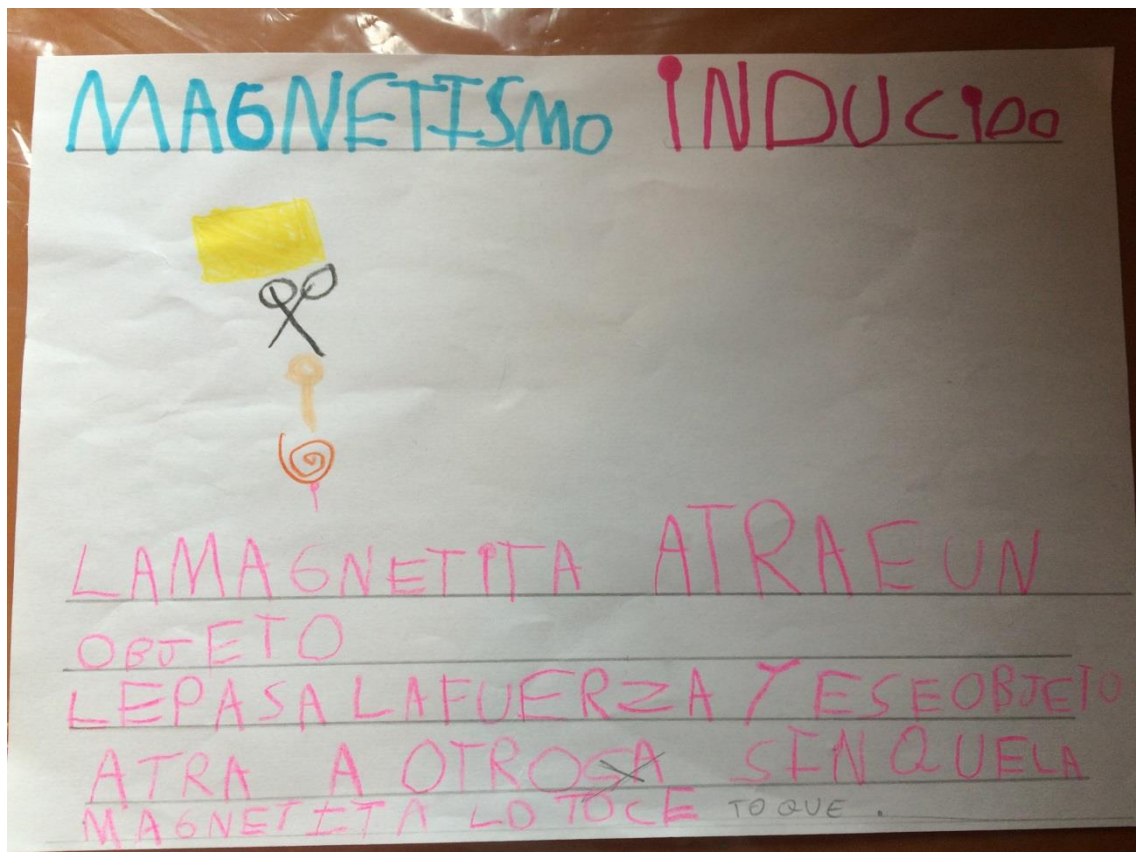 MAGNETISMO INDUCIDO
LAMAGNETITA ATRAE UN
OBJETO
LEPASA LAFUERZA Y ESEOBJETO
ATRA A OTROSA SIN QUELA
MAGNETITA LO TOCE TOQUE.